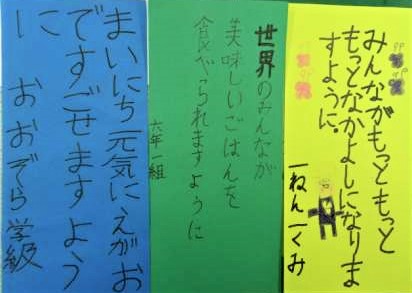 みんながもっともっと
もっとなかよしになりま
すように。
一ねん一くみ
世界のみんなが
美味しいごはんを
食べられますように
六年一組
まいにち元気にえがお
ですごせますよう
に おおぞら学級